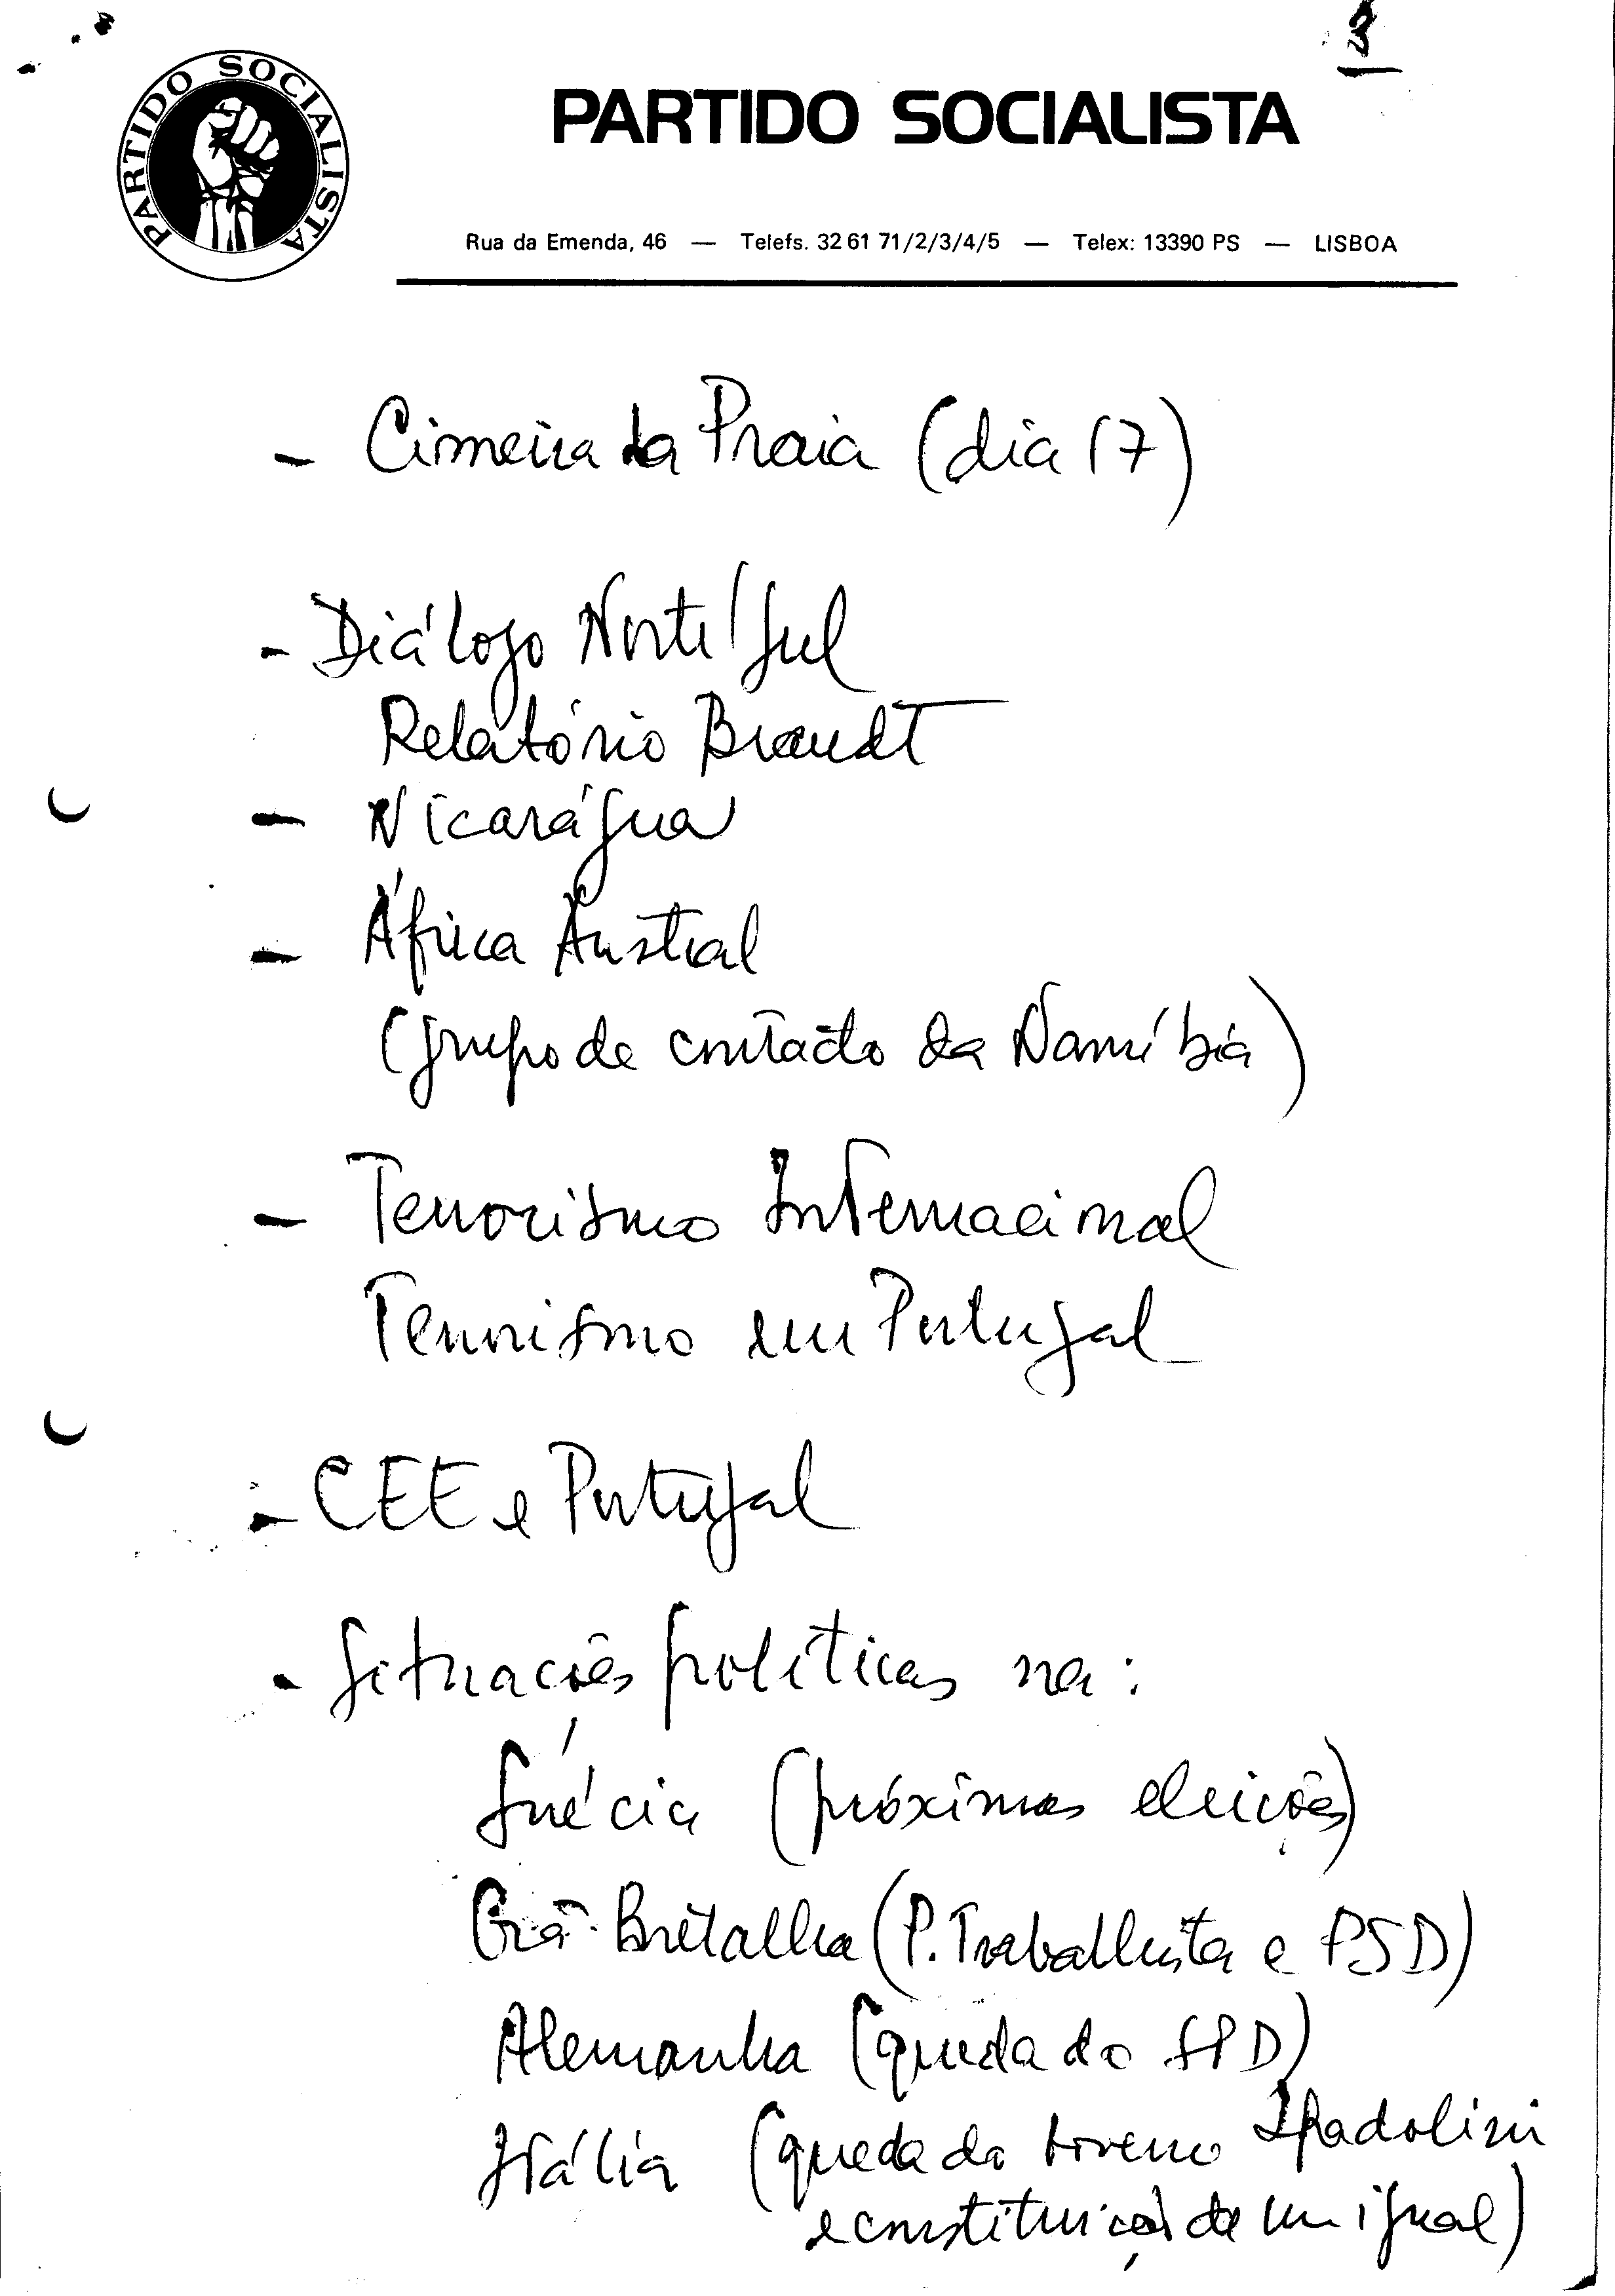 3
PARTIDO SOCIALISTA
PARTIDO SOCIALISTA
Rua da Emenda, 46 — Telefs. 32 61 71/2/3/4/5 — Telex: 13390 PS — LISBOA
- Cimeira da Praia (dia 17)
- Diálogo Norte/Sul
Relatório Brandt
- Nicarágua
- África Austral
(grupo de contacto da Namíbia)
- Terrorismo Internacional
Terrorismo em Portugal
- CEE e Portugal
- Situações políticas na:
Suécia (próximas eleições)
Grã-Bretalha (P. Trabalhista e PSD)
Alemanha (queda do SPD)
Itália (queda do Governo Spadolini
e constituição de um igual)